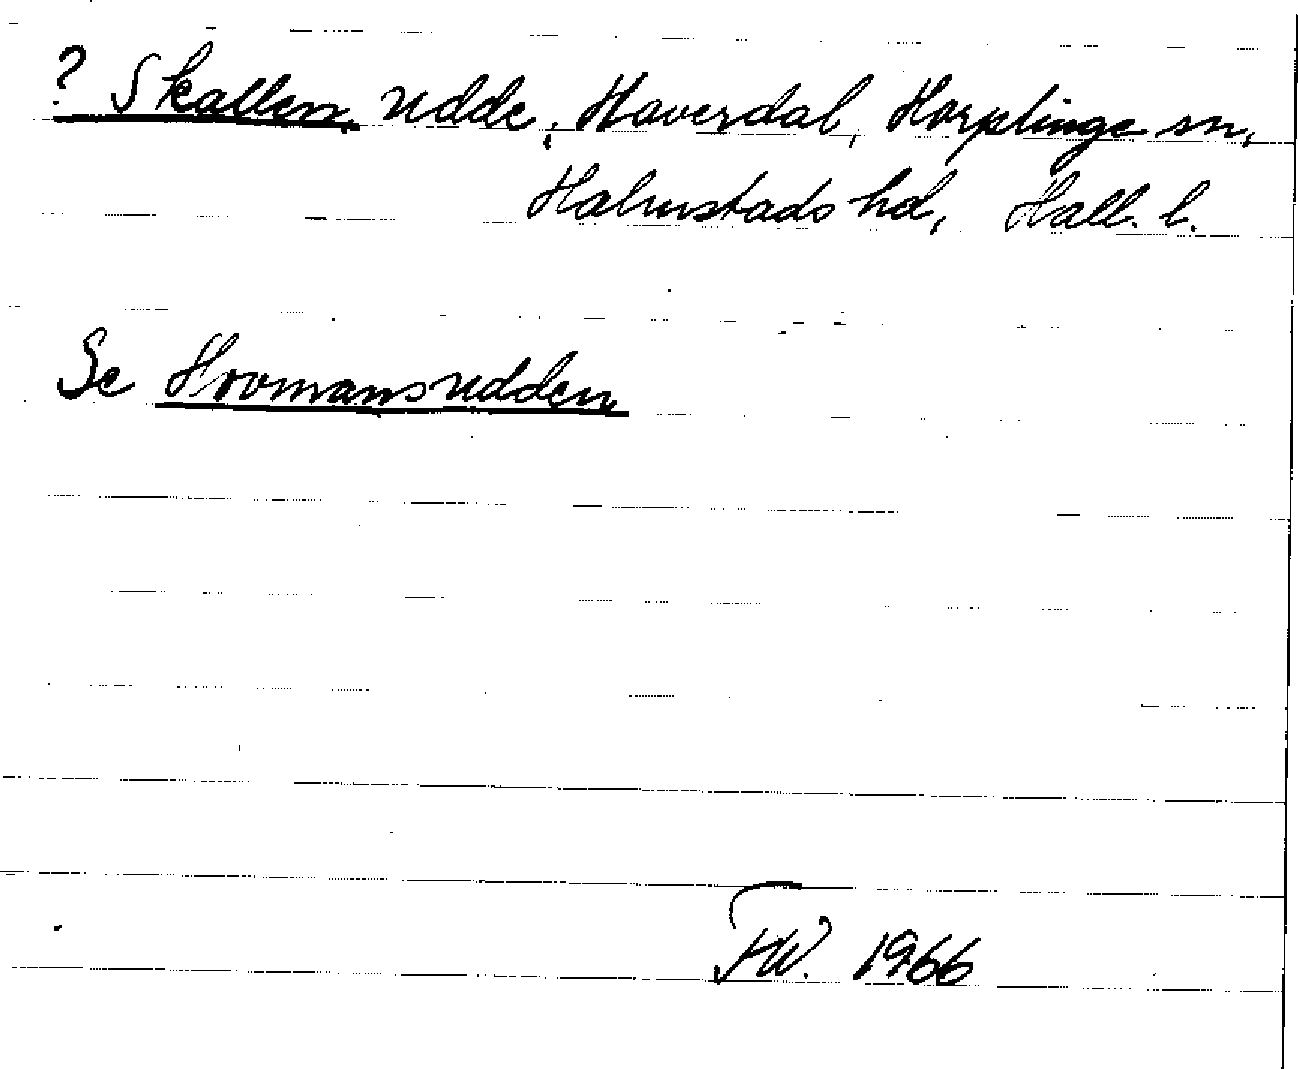 ? Skallen, udde, Haverdal, Harplinge sn,
Halmstads hd, Hall. l.
Se Hovmansudden
FW. 1966